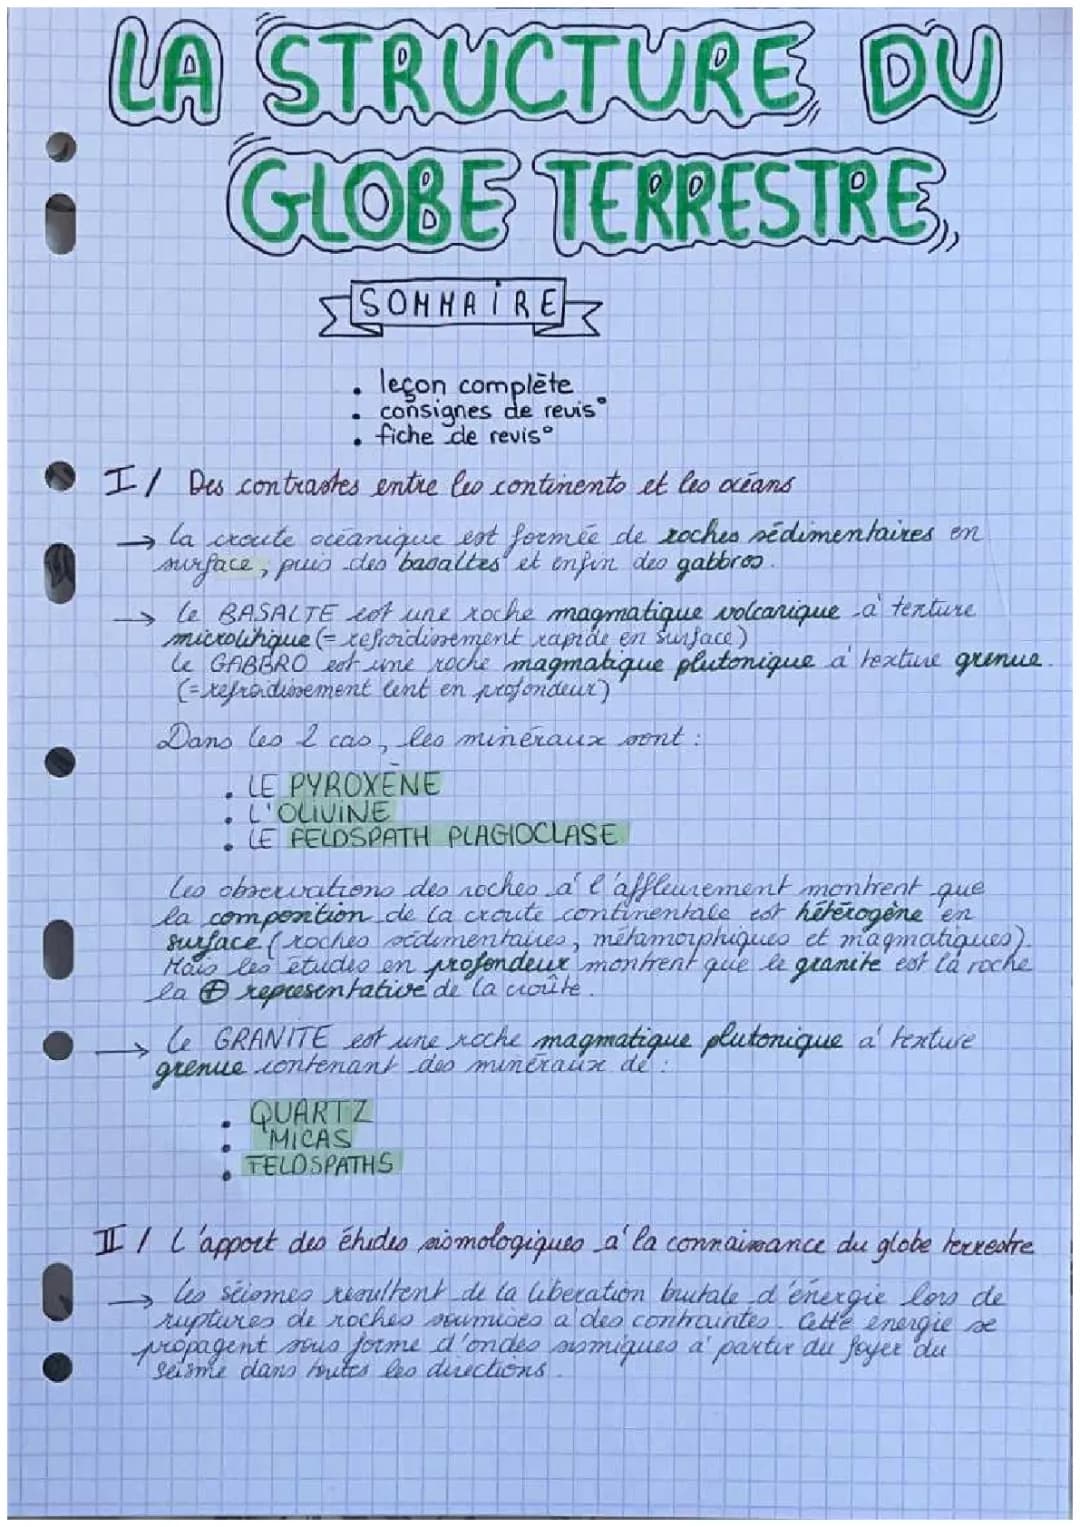 LA STRUCTURE DU
GLOBE TERRESTRE
SOMMAIRE
• leçon complète
• consignes de revis°
• fiche de revis°
I / Des contrastes entre les continents et les océans
→ la croute océanique est formée de roches sédimentaires en
surface, puis des basaltes et enfin des gabbros.
→ Le BASALTE est une roche magmatique volcanique à texture
microlithique (= refroidissement rapide en surface)
Le GABBRO est une roche magmatique plutonique à texture grenue.
(=refroidissement lent en profondeur)
Dans les 2 cas, les minéraux sont :
• LE PYROXÈNE
• L'OLIVINE
• LE FELDSPATH PLAGIOCLASE
Les observations des roches à l'affleurement montrent que
la composition de la croute continentale est hétérogène en
surface (roches sédimentaires, métamorphiques et magmatiques).
Mais les études en profondeur montrent que le granite est la roche
la ⊕ représentative de la croûte.
→ Le GRANITE est une roche magmatique plutonique à texture
grenue contenant des minéraux de :
• QUARTZ
• MICAS
• FELDSPATHS
II / L'apport des études sismologiques à la connaissance du globe terrestre
→ Les séismes résultent de la libération brutale d'énergie lors de
ruptures de roches soumises a des contraintes. Cette énergie se
propagent sous forme d'ondes sismiques à partir du foyer du
séisme dans toutes les directions.